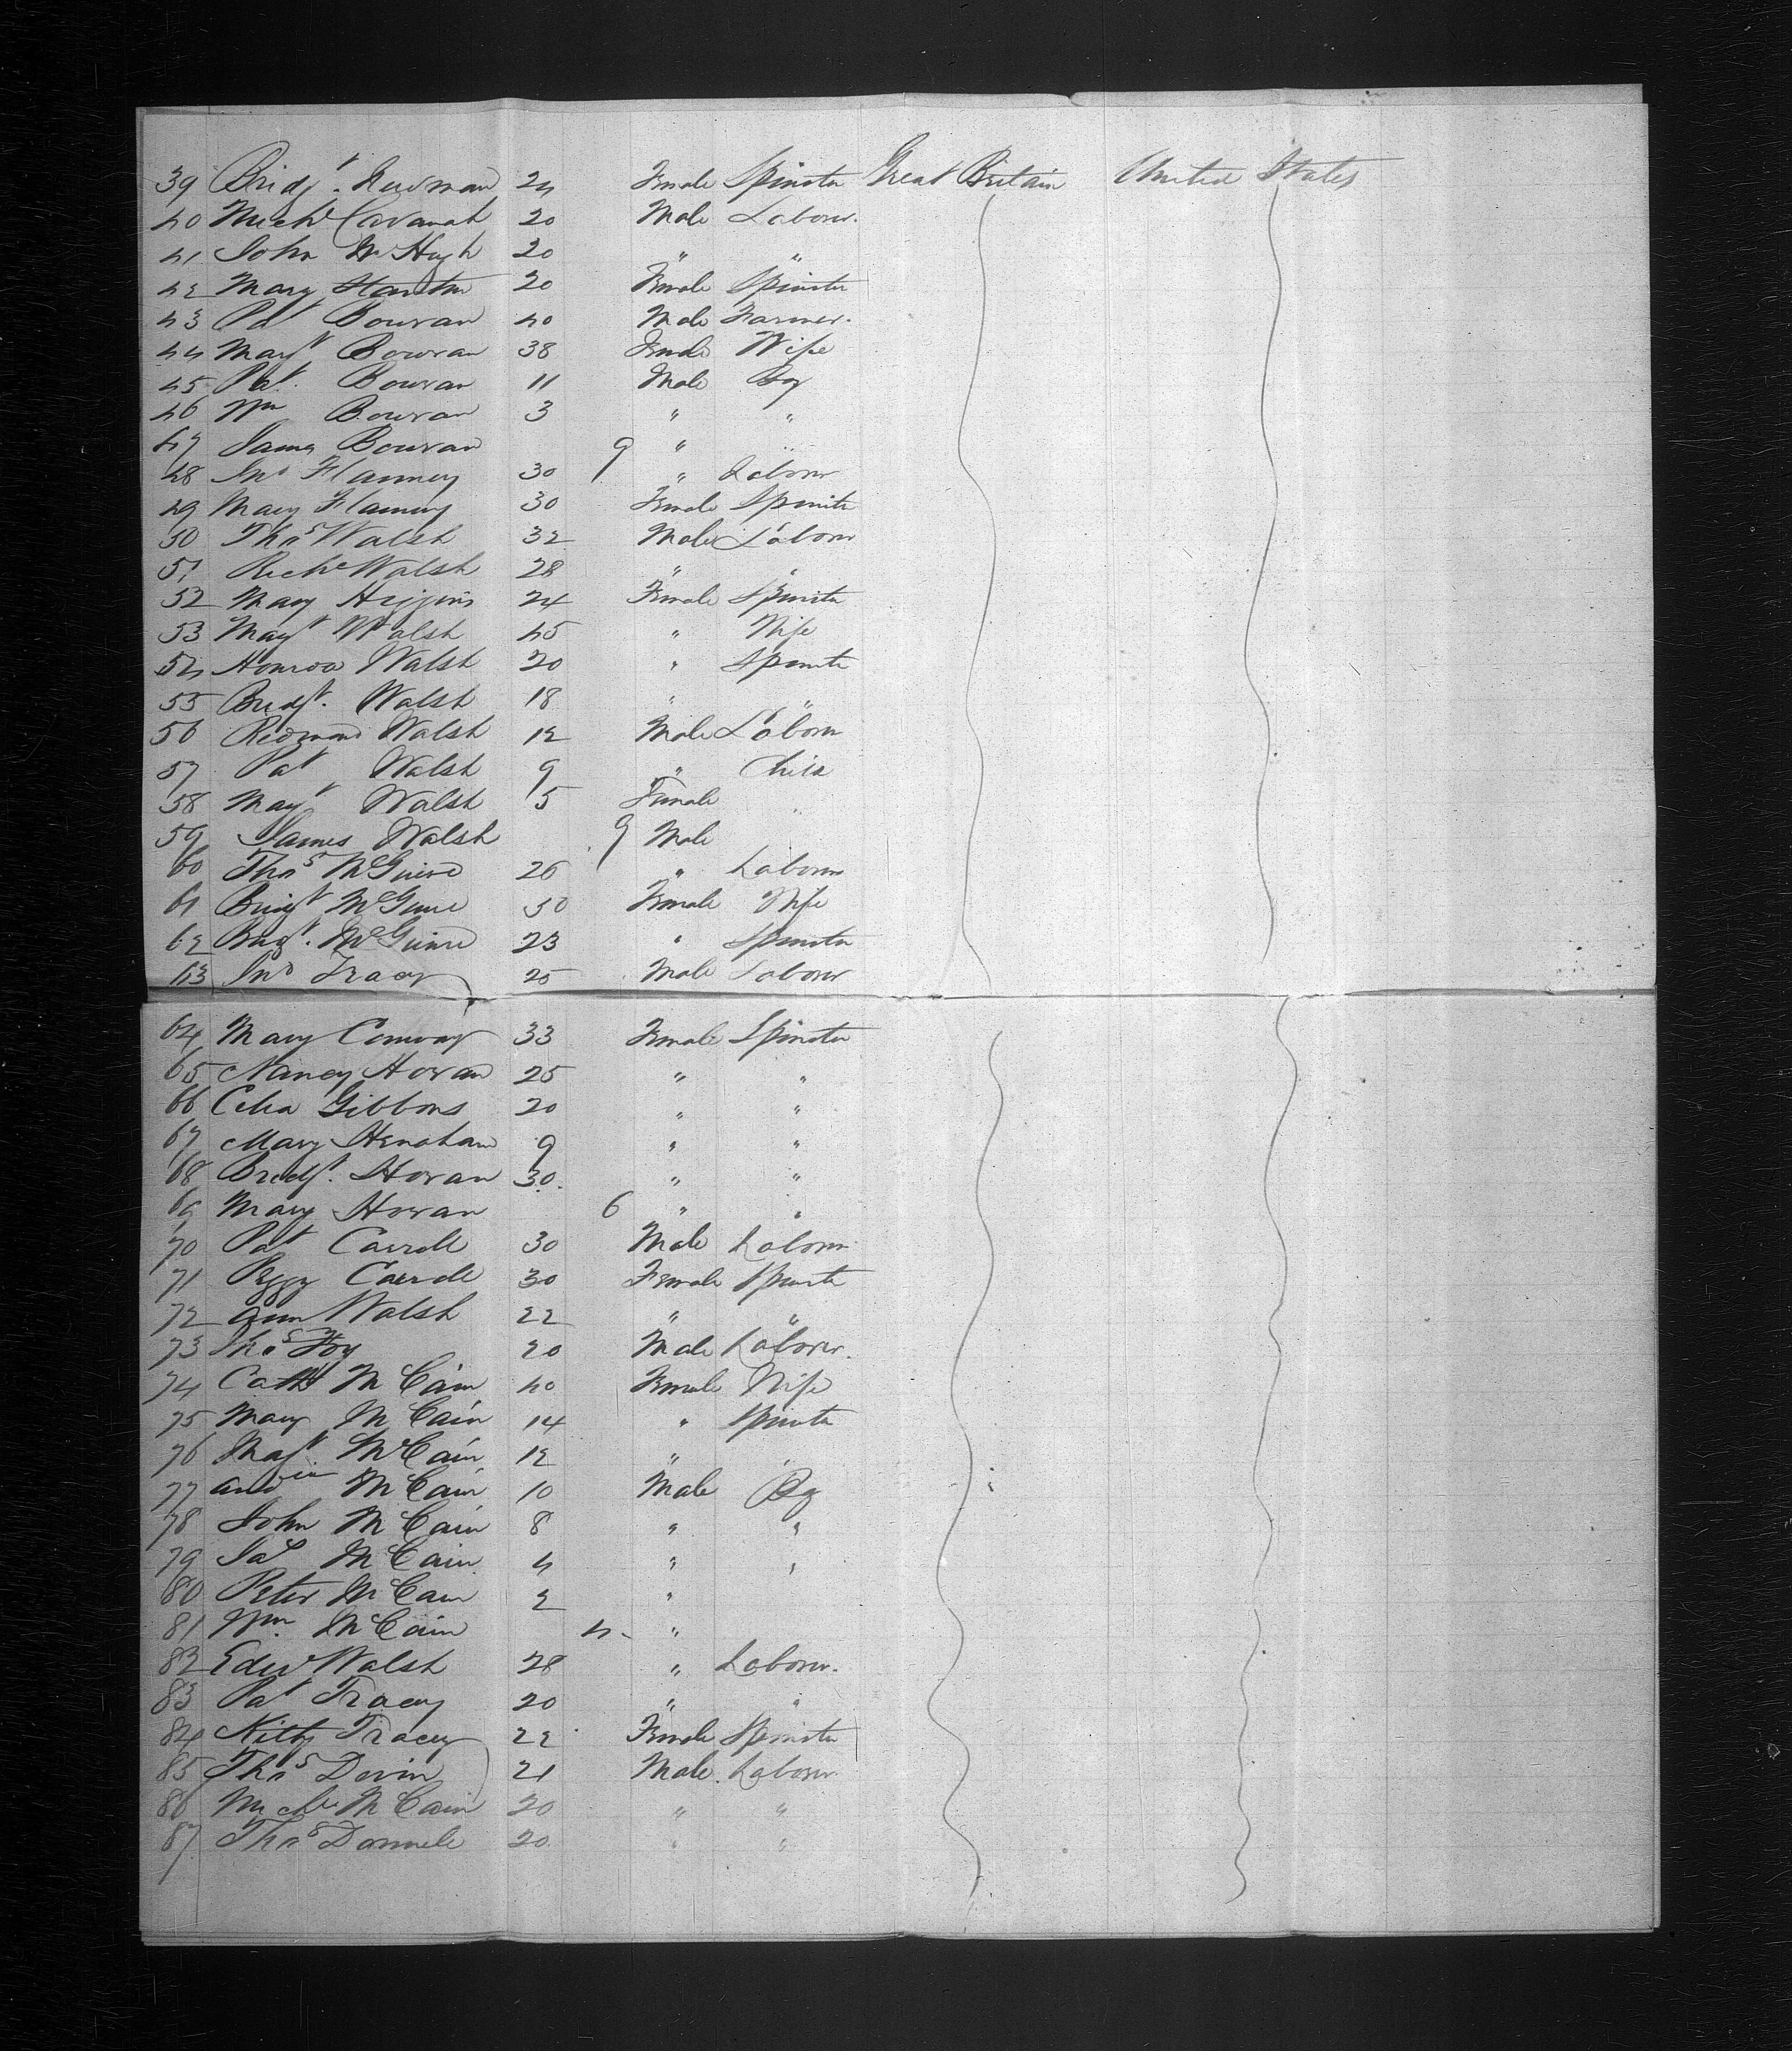 39 Bridgt. Newman 24 Female Spinster Great Britain United States
40 Michl Cavanah 20 Male Laborer.
41 John McHugh 20 " "
42 Mary 20 Female Spinster
43 Pat Bowran 40 Male Farmer.
44 Margt Bowran 38 Female Wife
45 Pat. Bowran 11 Male Boy
46 Wm Bowran 3 " "
47 James Bowran 9 " "
48 Jno Flannery 30 " Laborer
49 Mary Flannery 30 Female Spinster
50 Thos Walsh 32 Male Laborer
51 Richd Walsh 28 " "
52 Mary Higgins 24 Female Spinster
53 Margt Walsh 45 " Wife
54 Honroa Walsh 20 " Spinster
55 Bridgt. Walsh 18 " "
56 Redmond Walsh 12 Male Laborer
57 Pat Walsh 9 " Child
58 Margt Walsh 5 Female "
59 James Walsh 9 Male
60 Thos McGuire 26 " Laborer
61 Bridgt McGuire 30 Female Wife
62 Bridgt. McGuire 23 " Spinster
63 Jno Tracy 25 Male Laborer
64 Mary Conway 33 Female Spinster
65 Nancy Horan 25 " "
66 Celia Gibbons 20 " "
67 Mary Henahan 9 " "
68 Bridgt. Horan 30. " "
69 Mary Horan 6 " "
70 Pat Carroll 30 Male Laborer
71 Peggy Carroll 30 Female Spinster
72 Ann Walsh 22 " "
73 Thos Foy 20 Male Laborer.
74 Cath McCain 40 Female Wife
75 Mary McCain 14 " Spinster
76 Margt McCain 12 " "
77 Andw McCain 10 Male Boy
78 John McCain 8 " "
79 Jas McCain 4 " "
80 Peter McCain 2 "
81 Wm. McCain 4 - "
82 Edwd Walsh 28 " Laborer.
83 Pat Tracey 20 " "
84 Kitty Tracey 22 Female Spinster
85 Thos Devin 21 Male. Laborer
86 Michl McCain 20 " "
87 Thos Donnell 20. " "